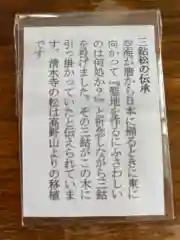 三鈷松の伝承
空海が唐から日本に帰るときに東に
向かって『聖地を作るにふさわしい
のは何処か?』と祈念しながら三鈷
を投げました。その三鈷がこの木に
引っ掛かっていたと伝えられていま
す。清水寺の松は高野山よりの移植
です